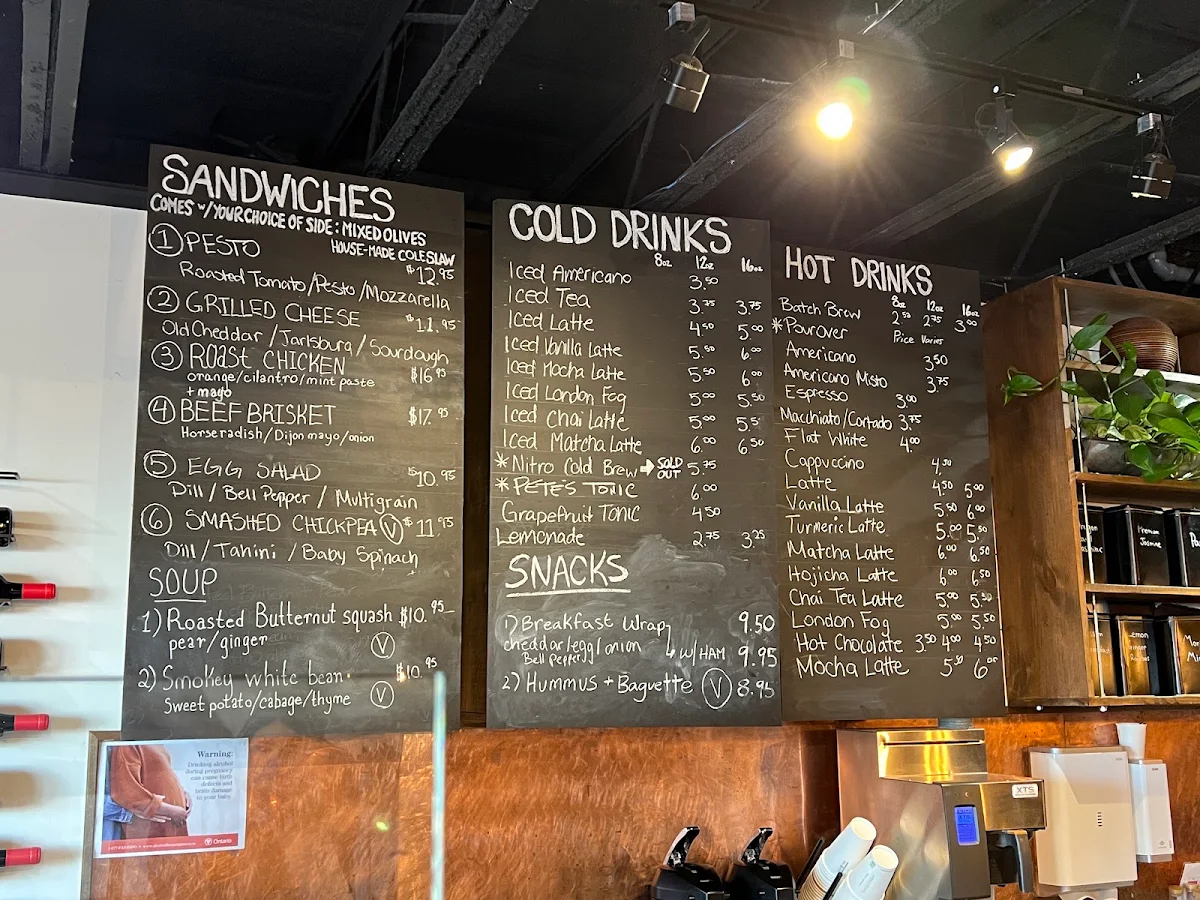 SANDWICHES
COMES w/ YOUR CHOICE OF SIDE: MIXED OLIVES
HOUSE-MADE COLESLAW
1 PESTO $12.95
Roasted Tomato/Pesto/Mozzarella
2 GRILLED CHEESE $11.95
Old Cheddar/Jarlsburg/Sourdough
3 ROAST CHICKEN $16.95
orange/cilantro/mint paste
+ mayo
4 BEEF BRISKET $17.95
Horseradish/Dijon mayo/onion
5 EGG SALAD $10.95
Dill/Bell Pepper/Multigrain
6 SMASHED CHICKPEA V $11.95
Dill/Tahini/Baby Spinach
SOUP
1) Roasted Butternut squash $10.95
pear/ginger V
2) Smokey white bean. $10.95
Sweet potato/cabage/thyme V
COLD DRINKS
8oz 12oz 16oz
Iced Americano 3.50
Iced Tea 3.75 3.75
Iced Latte 4.50 5.00
Iced Vanilla Latte 5.50 6.00
Iced Mocha Latte 5.50 6.00
Iced London Fog 5.00 5.50
Iced Chai Latte 5.00 5.5
Iced Matcha Latte 6.00 6.50
*Nitro Cold Brew → SOLD OUT 5.75
*PETE'S TONIC 6.00
Grapefruit TONIC 4.50
Lemonade 2.75 3.25
SNACKS
1) Breakfast Wrap 9.50
cheddar/egg/onion
Bell Pepper ↳ W/HAM 9.95
2) Hummus + Baguette V 8.95
HOT DRINKS
8oz 12oz 16oz
Batch Brew 2.50 2.75 3.00
*Pourover Price Varies
Americano 3.50
Americano Misto 3.75
Espresso 3.00
Macchiato/Cortado 3.75
Flat White 4.00
Cappuccino 4.50
Latte 4.50 5.00
Vanilla Latte 5.50 6.00
Turmeric Latte 5.00 5.50
Matcha Latte 6.00 6.50
Hojicha Latte 6.00 6.50
Chai Tea Latte 5.00 5.50
London Fog 5.00 5.50
Hot Chocolate 3.50 4.00 4.50
Mocha Latte 5.50 6.00
Warning:
Drinking alcohol
during pregnancy
can cause birth
defects and
brain damage
to your baby.
Ontario
XTS
Jasmine
Lemon
Ginger